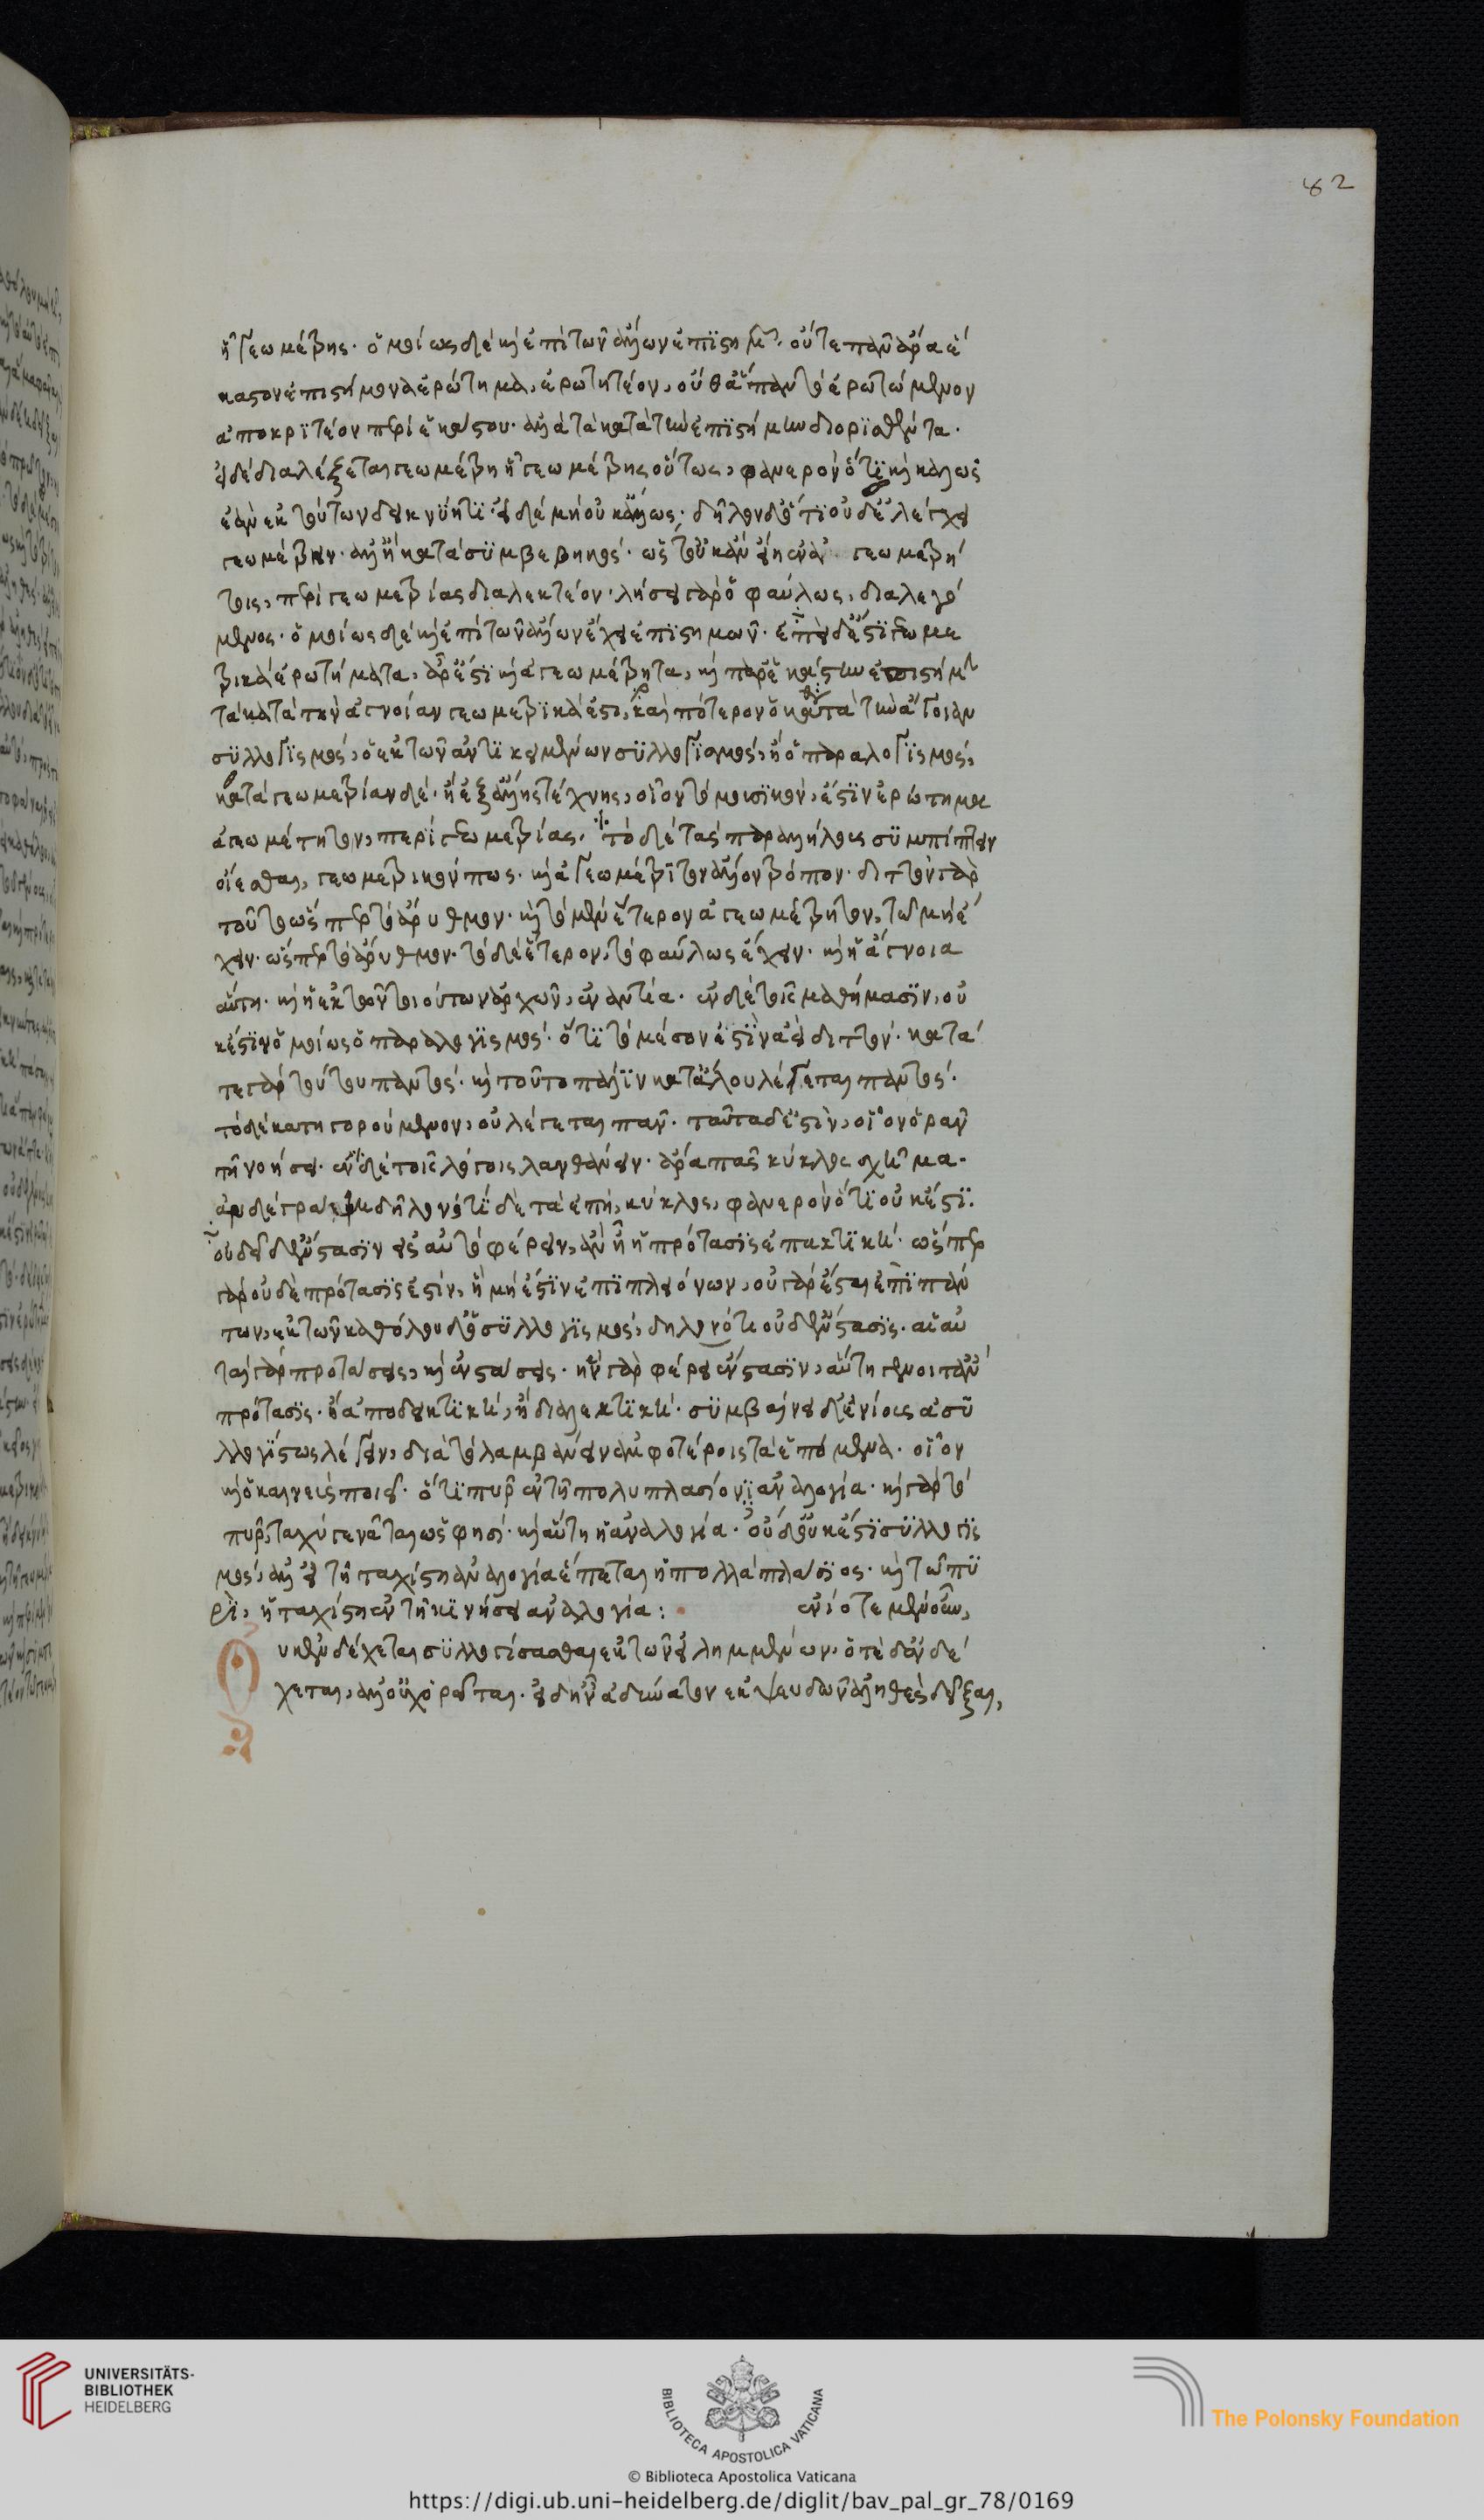 ᾗ γεωμέτρης. ὁμοίως δὲ καὶ ἐπὶ τῶν ἄλλων ἐπιστημ. οὔτε πᾶν ἄρα ἕ
καστον ἐπιστήμονα ἐρώτημα, ἐρωτητέον, οὔθ' ἅπαν τὸ ἐρωτώμενον
ἀποκριτέον περὶ ἑκάστου. ἀλλὰ τὰ κατὰ τὴν ἐπιστήμην διορισθέντα.
εἰ δὲ διαλέξεται γεωμέτρη ᾗ γεωμέτρης οὕτως, φανερὸν ὅτι καὶ καλῶς
ἐὰν ἐκ τούτων δεικνύη τι· εἰ δὲ μὴ οὐ καλῶς· δῆλον δ' ὅτι οὐδ' ἐλέγχει
γεωμέτρην. ἀλλ' ἢ κατὰ συμβεβηκός. ὥστ' οὐκ ἂν εἴη ἐν ἀ γεωμετρή
τοις, περὶ γεωμετρίας διαλεκτέον. λήσει γὰρ ὁ φαύλως, διαλεγό
μενος. ὁμοίως δὲ καὶ ἐπὶ τῶν ἄλλων ἔχει ἐπιστημῶν. ἐπεὶ δ' ἔστι γεωμε
τρικὰ ἐρωτήματα, ἆρ' ἔστι καὶ ἀγεωμέτρητα, καὶ παρ' ἑκάστην ἐπιστήμ
τὰ κατὰ τὴν ἄγνοιαν γεωμετρικά ἐστι, καὶ πότερον ὁ κατὰ τὴν ἄγνοιαν
συλλογισμός, ὁ ἐκ τῶν ἀντικειμένων συλλογισμός, ἢ ὁ παραλογισμός,
κατὰ γεωμετρίαν δέ. ἢ ἐξ ἄλλης τέχνης, οἷον τὸ μουσικόν, ἐστὶν ἐρώτημα
ἀγεωμέτρητον, περὶ γεωμετρίας. τὸ δὲ τὰς παραλλήλους συμπίπτειν
οἴεσθαι, γεωμετρικόν πως. καὶ ἀγεωμέτρητον ἄλλον τρόπον. διττὸν γὰρ
τοῦτο ὥσπερ τὸ ἄρυθμον. καὶ τὸ μὲν ἕτερον ἀγεωμέτρητον, τῷ μὴ ἔ
χειν. ὥσπερ τὸ ἄρυθμον. τὸ δὲ ἕτερον, τὸ φαύλως ἔχειν. καὶ ἡ ἄγνοια
αὕτη. καὶ ἡ ἐκ τῶν τοιούτων ἀρχῶν, ἐναντία. ἐν δὲ τοῖς μαθήμασιν, οὐ
κ ἔστιν ὁμοίως ὁ παραλογισμός. ὅτι τὸ μέσον ἐστὶν ἀεὶ διττόν. κατά
τε γὰρ τούτου παντός. καὶ τοῦτο πάλιν κατ' ἄλλου λέγεται παντός.
τὸ δὲ κατηγορούμενον, οὐ λέγεται πᾶν. ταῦτα δ' ἐστὶν, οἷον ὁρᾶν
τῇ νοήσει. ἐν δὲ τοῖς λόγοις λανθάνειν. ἆρα πᾶς κύκλος σχῆμα.
ἂν δὲ γράψη δῆλον, τί δὲ τὰ ἔπη, κύκλος, φανερὸν ὅτι οὐκ ἔστι.
οὐ δεῖ δ' ἔνστασιν εἰς αὐτὸ φέρειν, ἂν ᾖ ἡ πρότασις ἐπακτική. ὥσπερ
γὰρ οὐδὲ πρότασίς ἐστιν, ἢ μή ἐστιν ἐπὶ πλειόνων, οὐ γὰρ ἔσται ἐπὶ πάν
των, ἐκ τῶν καθόλου δ' ὁ συλλογισμός, δῆλον ὅτι οὐδ' ἔνστασις. αἱ αὐ
ταὶ γὰρ προτάσεις, καὶ ἐνστάσεις. ἣν γὰρ φέρει ἔνστασιν, αὕτη γένοιτ' ἂν
πρότασις. ἢ ἀποδεικτική, ἢ διαλεκτική. συμβαίνει δ' ἐνίους ἀσυ
λλογίστως λέγειν, διὰ τὸ λαμβάνειν ἀμφοτέροις τὰ ἑπόμενα. οἷον
καὶ ὁ καινεὺς ποιεῖ. ὅτι πῦρ ἐν τῇ πολυπλασίονι ἀναλογία. καὶ γὰρ τὸ
πῦρ, ταχὺ γεννᾶται ὥς φησί. καὶ αὕτη ἡ ἀναλογία. οὕτω δ' οὐκ ἔστι συλλογισ
μός, ἀλλ' εἰ τῇ ταχίστη ἀναλογία ἕπεται ἡ πολλαπλάσιος. καὶ τῷ πυ
ρὶ, ἡ ταχίστη ἐν τῇ κινήσει ἀναλογία: ἐνίοτε μὲν οὖν,
Ουκ ἐνδέχεται συλλογίσασθαι ἐκ τῶν εἰλημμένων. ὁτὲ δ' ἐνδέ
χεται, ἀλλ' οὐχ ὁρᾶται. εἰ δ' ἦν ἀδύνατον ἐκ ψευδῶν ἀληθὲς δεῖξαι,
82
UNIVERSITÄTS-
BIBLIOTHEK
HEIDELBERG
BIBLIOTECA APOSTOLICA VATICANA
The Polonsky Foundation
© Biblioteca Apostolica Vaticana
https://digi.ub.uni-heidelberg.de/diglit/bav_pal_gr_78/0169